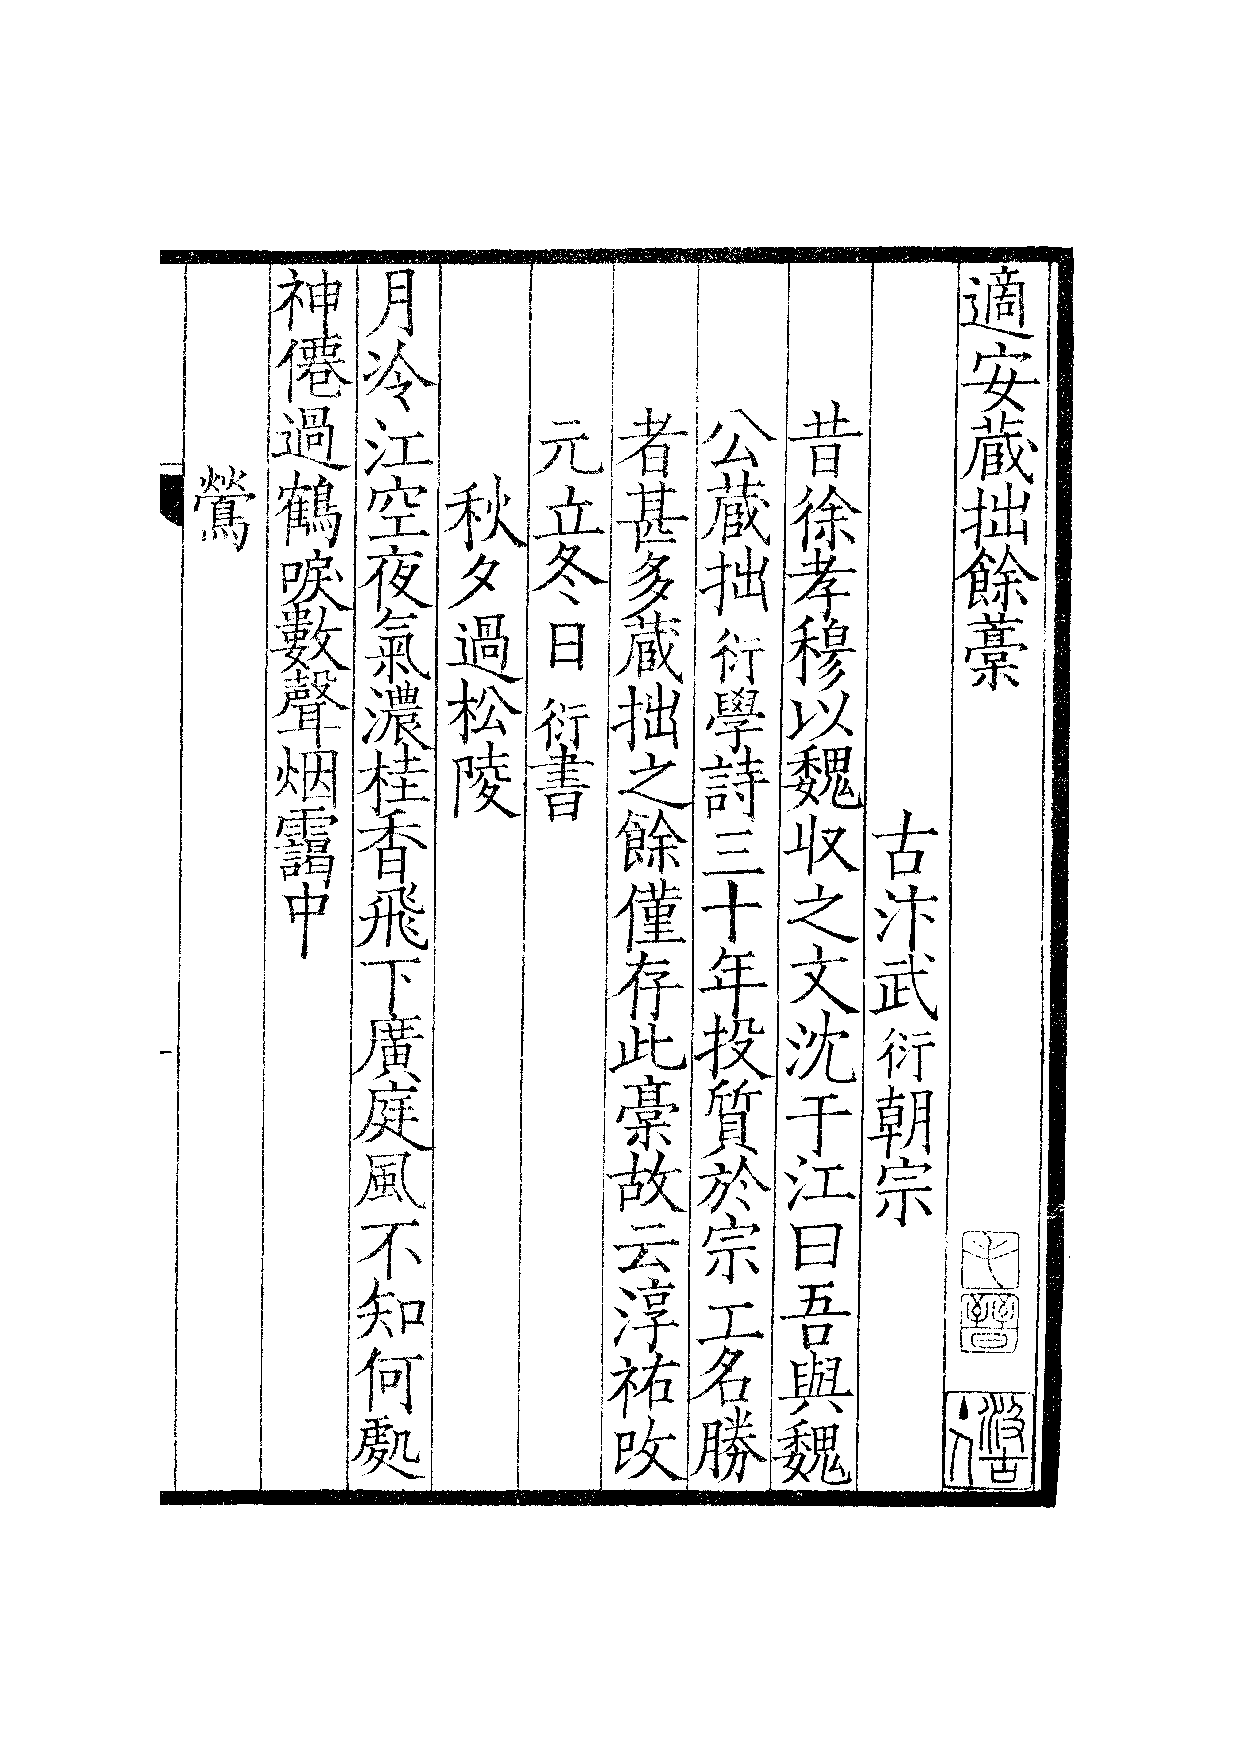 適安蔵拙餘藁
古汴武衍朝宗
昔徐孝穆以魏収之文沈于江曰吾與魏
公蔵拙衍學詩三十年投質於宗工名勝
者甚多蔵拙之餘僅存此藁故云淳祐改
元立冬日衍書
秋夕過松陵
月冷江空夜氣濃桂香飛下廣庭風不知何處
神僊過鶴唳數聲烟靄中
鶯